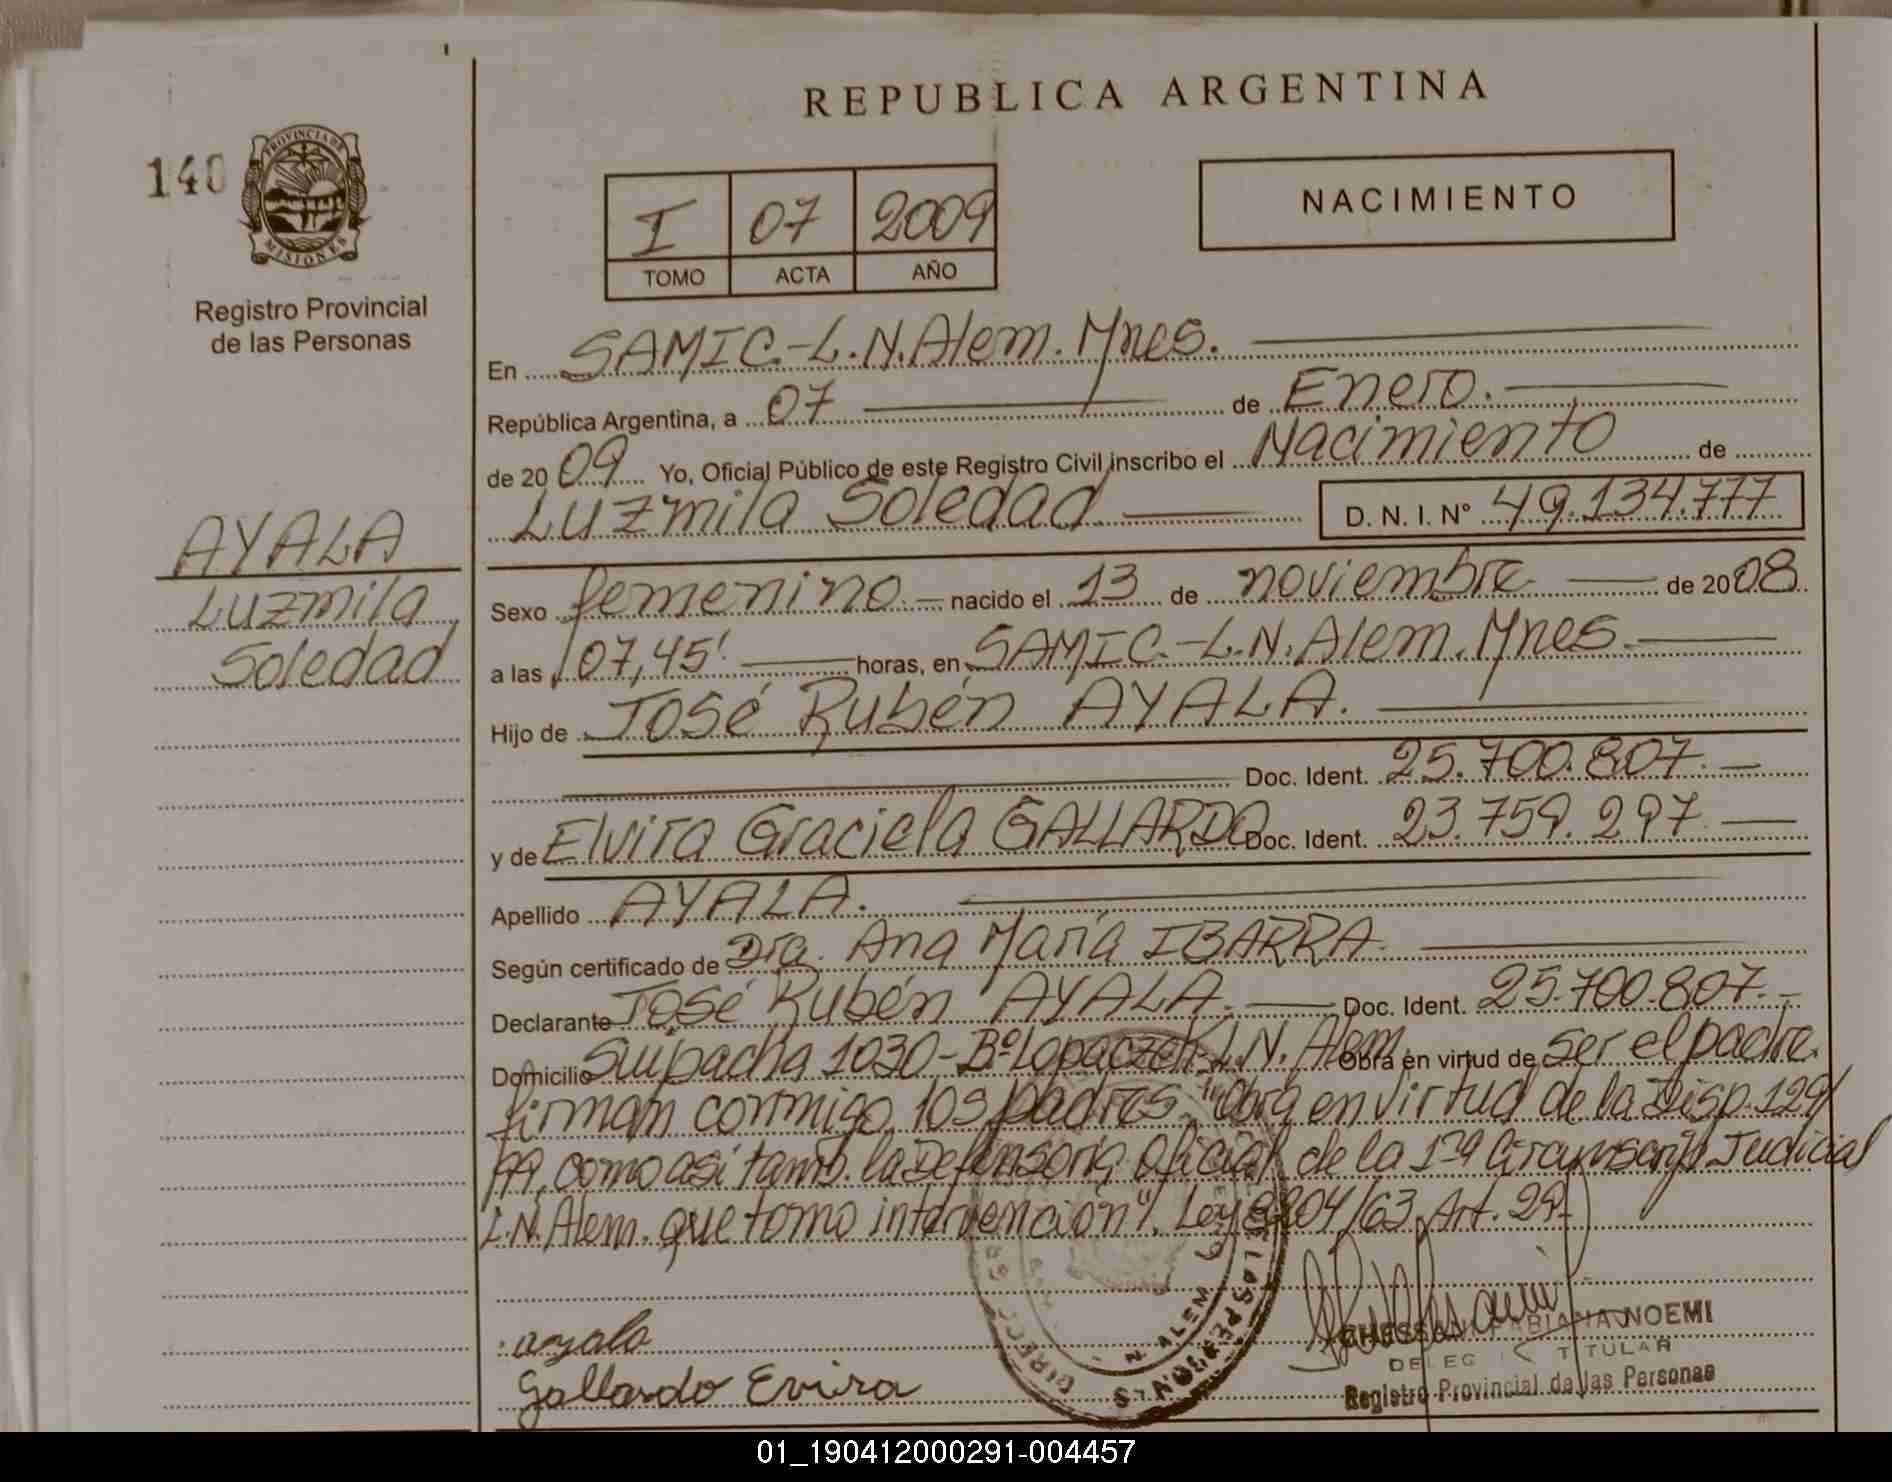 REPUBLICA ARGENTINA
140
PROVINCIA DE
MISIONES
Registro Provincial
de las Personas
I 07 2009
TOMO ACTA AÑO
NACIMIENTO
En SAMIC.-L.N.Alem.Mnes.
República Argentina, a 07 de Enero.
de 2009 Yo, Oficial Público de este Registro Civil inscribo el Nacimiento de
Luzmila Soledad D. N. I. N° 49.134.777
AYALA
Luzmila
Soledad
Sexo femenino.- nacido el 13 de noviembre de 2008
a las 07,45' horas, en SAMIC.-L.N.Alem.Mnes.
Hijo de José Rubén AYALA.
Doc. Ident. 25.700.807.
y de Elvira Graciela GALLARDO Doc. Ident. 23.759.297
Apellido AYALA.
Según certificado de Dra. Ana María IBARRA.
Declarante José Rubén AYALA. Doc. Ident. 25.700.807.-
Domicilio Suipacha 1030-Bº Lopaczek L.N. Alem. Obra en virtud de ser el padre.
firman conmigo los padres. "Obra en virtud de la Disp. 129/
99, como asi tamb. la Defensoría Oficial de la 1ra Judicial
L.N. Alem. que tomo intervención". Ley 8204/63 Art. 29.
ayala
Gallardo Evira
N. ALEM
NOEMI
TITULAR
Registro Provincial de las Personas
01_190412000291-004457